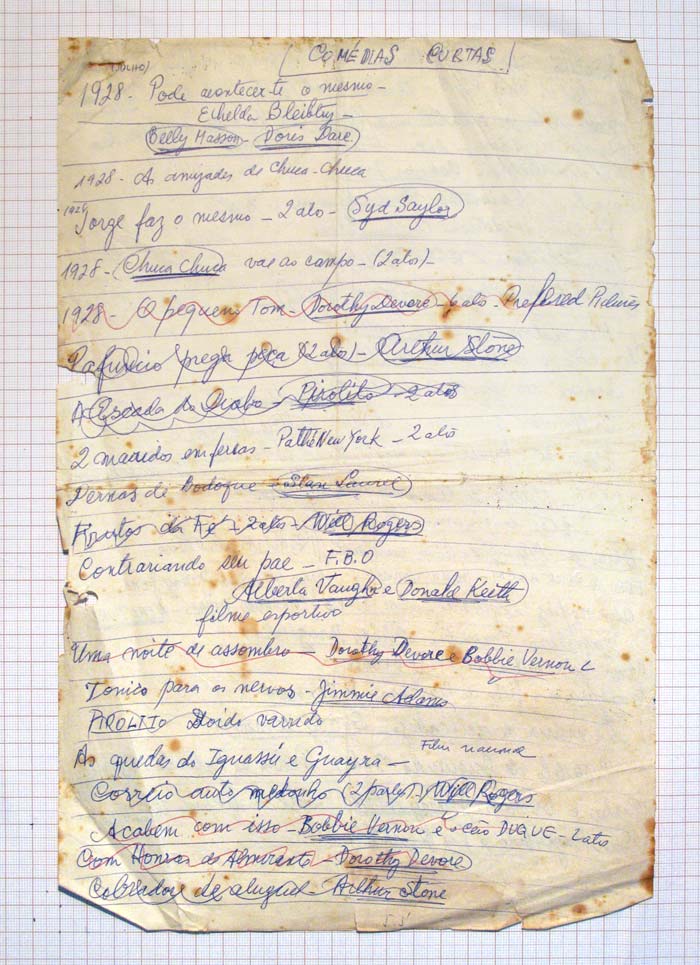 COMÉDIAS CURTAS
(JULHO)
1928 - Pode acontecer-te o mesmo -
Ethelda Bleibtrey -
Billy Mason - Doris Dare
1928 - As amizades de Chuca-Chuca
Jorge faz o mesmo - 2 atos - Syd Saylor
1928 - Chuca Chuca vae ao campo - (2 atos) -
1928 - O pequeno Tom - Dorothy Devore - 6 atos - Preferred Pictures
Pafuncio prega peça (2 atos) - Arthur Stone
A Escada do Diabo - Pirolito - 2 atos
2 maridos em ferias - Pathé New York - 2 atos
Pernas de Bodoque - Stan Laurel
Frutos da Fé - 2 atos - Will Rogers
Contrariando seu pae - F.B.O
Alberta Vaughn e Donald Keith
filme esportivo
Uma noite de assombro - Dorothy Devore e Bobbie Vernon
Tonico para os nervos - Jimmie Adams
PIROLITO Doido varrido
As quedas do Iguassú e Guayra - Film nacional
Correio auto medonho (2 partes) - Will Rogers
Acabem com isso - Bobbie Vernon e o cão DUQUE - 2 atos
Com Honras de Almirante - Dorothy Devore
Cobrador de aluguel - Arthur Stone